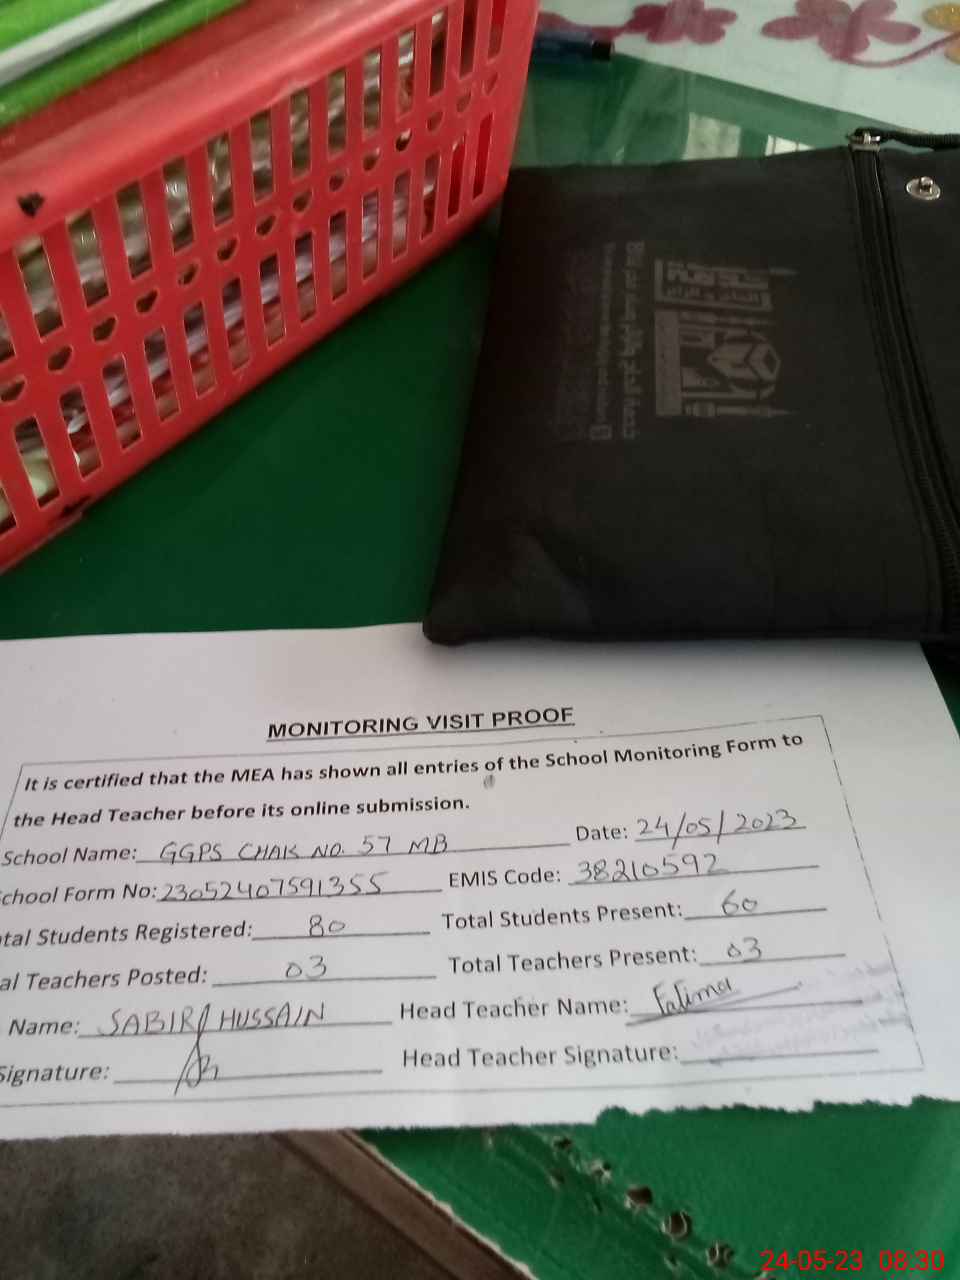 MONITORING VISIT PROOF
It is certified that the MEA has shown all entries of the School Monitoring Form to
the Head Teacher before its online submission.
School Name: GGPS CHAK NO. 57 MB Date: 24/05/2023
chool Form No: 23052407591355 EMIS Code: 38210592
tal Students Registered: 80 Total Students Present: 60
al Teachers Posted: 03 Total Teachers Present: 03
Name: SABIR HUSSAIN Head Teacher Name: Fatima
Signature: Head Teacher Signature:
24-05-23 08.30